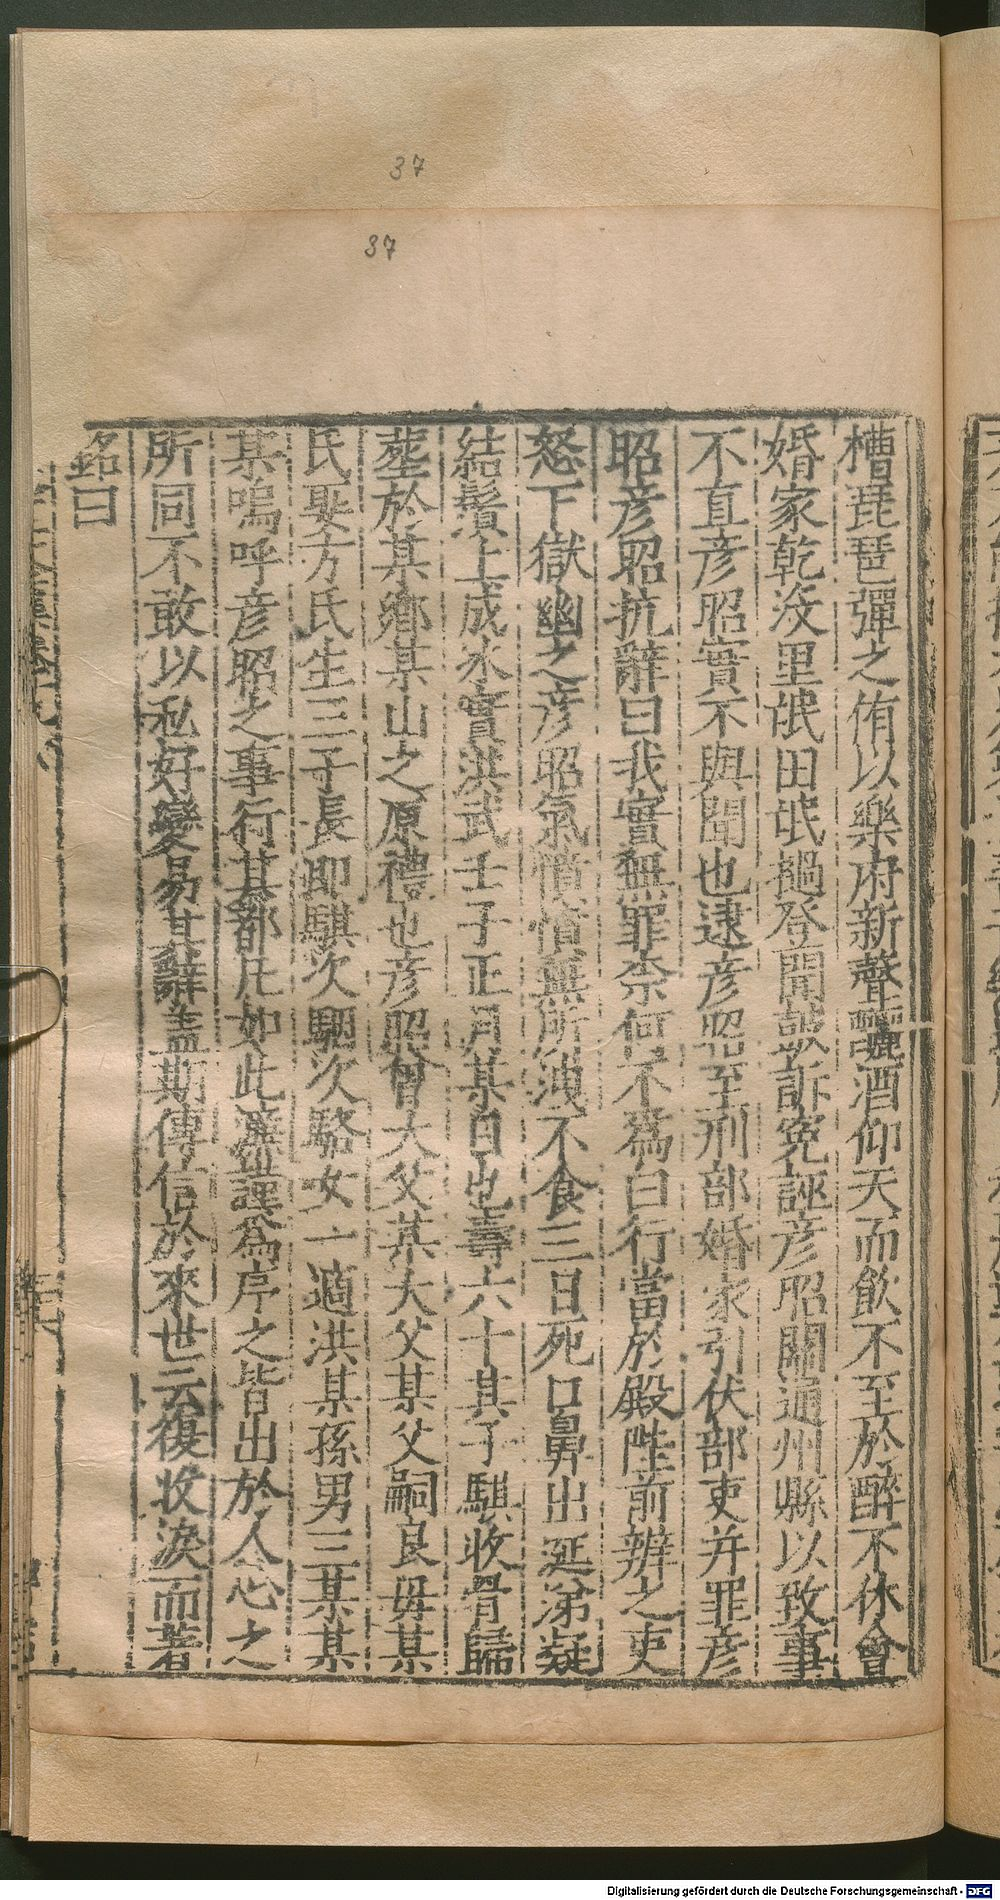 37
37
槽琵琶彈之侑以樂府新聲釃酒仰天而飲不至於醉不休會
婚家乾沒里氓田氓撾登聞鼓訴冤誣彥昭關通州縣以致事
不直彥昭實不與聞也逮彥昭至刑部婚家引伏部吏并罪彥
昭彥昭抗辭曰我實無罪柰何不為白行當於殿陛前辨之吏
怒下獄幽之彥昭氣憤憤無所洩不食三日死口鼻出涎涕凝
結鬚上成冰實洪武壬子正月某日也壽六十其子騏收骨歸
塟於某鄉某山之原禮也彥昭曾大父某大父某父嗣良毋某
氏娶方氏生三子長即騏次駰次駱女一適洪某孫男三某某
某嗚呼彥昭之事行其都凡如此濂謹為序之皆出於人心之
所同不敢以私好變易其辭盖期傳信於來世云復收淚而著
銘曰
Digitalisierung gefördert durch die Deutsche Forschungsgemeinschaft - DFG